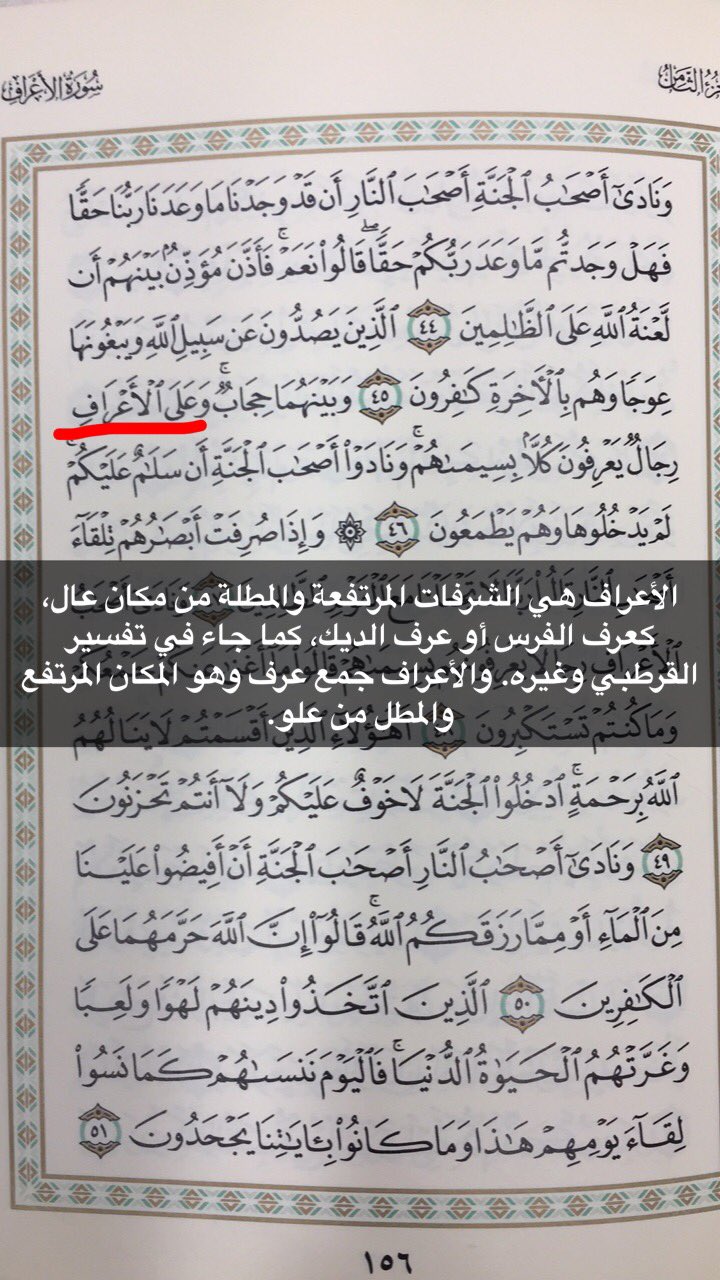 سُورَةُ الأَعْرَافِ
وَنَادَىٰٓ أَصۡحَٰبُ ٱلۡجَنَّةِ أَصۡحَٰبَ ٱلنَّارِ أَن قَدۡ وَجَدۡنَا مَا وَعَدَنَا رَبُّنَا حَقّٗا
فَهَلۡ وَجَدتُّم مَّا وَعَدَ رَبُّكُمۡ حَقّٗاۖ قَالُواْ نَعَمۡۚ فَأَذَّنَ مُؤَذِّنُۢ بَيۡنَهُمۡ أَن
لَّعۡنَةُ ٱللَّهِ عَلَى ٱلظَّٰلِمِينَ ٤٤ ٱلَّذِينَ يَصُدُّونَ عَن سَبِيلِ ٱللَّهِ وَيَبۡغُونَهَا
عِوَجٗا وَهُم بِٱلۡأٓخِرَةِ كَٰفِرُونَ ٤٥ وَبَيۡنَهُمَا حِجَابٞۚ وَعَلَى ٱلۡأَعۡرَافِ
رِجَالٞ يَعۡرِفُونَ كُلَّۢا بِسِيمَىٰهُمۡۚ وَنَادَوۡاْ أَصۡحَٰبَ ٱلۡجَنَّةِ أَن سَلَٰمٌ عَلَيۡكُمۡۚ
لَمۡ يَدۡخُلُوهَا وَهُمۡ يَطۡمَعُونَ ٤٦ ۞ وَإِذَا صُرِفَتۡ أَبۡصَٰرُهُمۡ تِلۡقَآءَ
الأعراف هي الشرفات المرتفعة والمطلة من مكان عال،
كعرف الفرس أو عرف الديك، كما جاء في تفسير
القرطبي وغيره. والأعراف جمع عرف وهو المكان المرتفع
والمطل من علو.
وَمَا كُنتُمۡ تَسۡتَكۡبِرُونَ أَهَٰٓؤُلَآءِ ٱلَّذِينَ أَقۡسَمۡتُمۡ لَا يَنَالُهُمُ
ٱللَّهُ بِرَحۡمَةٍۚ ٱدۡخُلُواْ ٱلۡجَنَّةَ لَا خَوۡفٌ عَلَيۡكُمۡ وَلَآ أَنتُمۡ تَحۡزَنُونَ
٤٩ وَنَادَىٰٓ أَصۡحَٰبُ ٱلنَّارِ أَصۡحَٰبَ ٱلۡجَنَّةِ أَنۡ أَفِيضُواْ عَلَيۡنَا
مِنَ ٱلۡمَآءِ أَوۡ مِمَّا رَزَقَكُمُ ٱللَّهُۚ قَالُوٓاْ إِنَّ ٱللَّهَ حَرَّمَهُمَا عَلَى
ٱلۡكَٰفِرِينَ ٥٠ ٱلَّذِينَ ٱتَّخَذُواْ دِينَهُمۡ لَهۡوٗا وَلَعِبٗا
وَغَرَّتۡهُمُ ٱلۡحَيَوٰةُ ٱلدُّنۡيَاۚ فَٱلۡيَوۡمَ نَنسَىٰهُمۡ كَمَا نَسُواْ
لِقَآءَ يَوۡمِهِمۡ هَٰذَا وَمَا كَانُواْ بِـَٔايَٰتِنَا يَجۡحَدُونَ ٥١
١٥٦